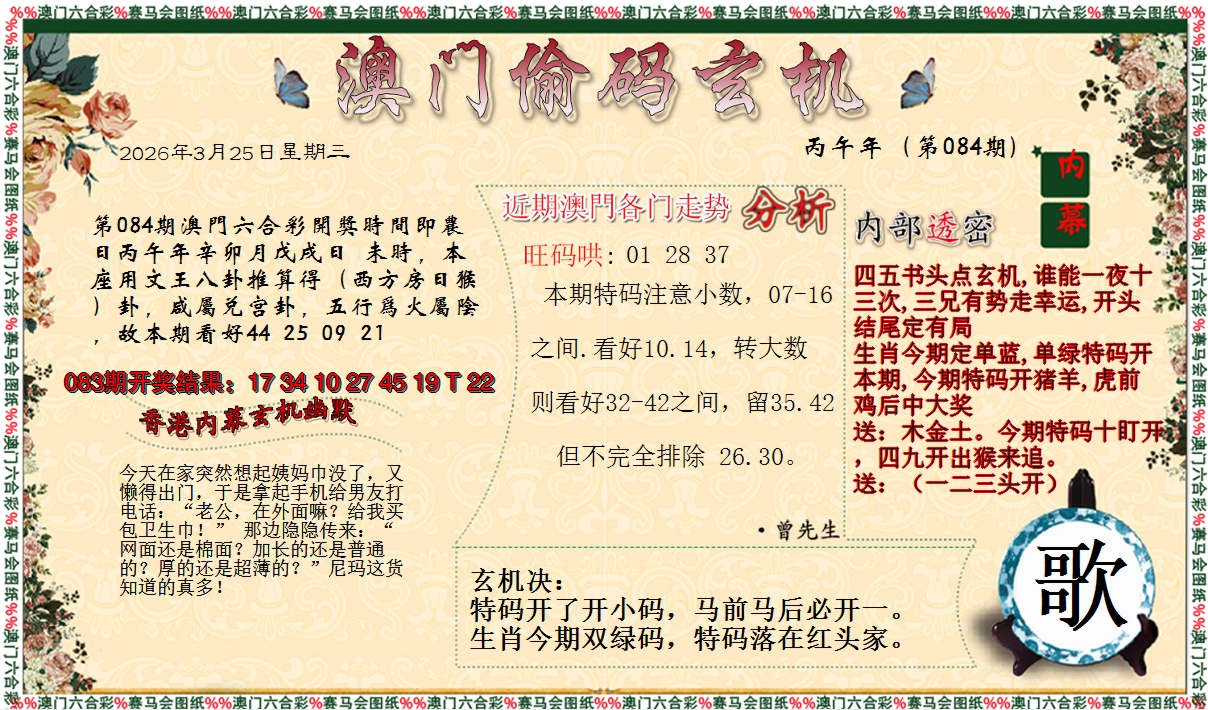 %%澳门六合彩%赛马会图纸%%澳门六合彩%赛马会图纸%%澳门六合彩%赛马会图纸%%澳门六合彩%赛马会图纸%%澳门六合彩%赛马会图纸%%澳门六合彩%赛马会图纸%%
澳门偷码玄机
2026年3月25日星期三
丙午年（第084期）
第084期澳門六合彩開獎時間即農
日丙午年辛卯月戊戌日 未時，本
座用文王八卦推算得（西方房日猴
）卦，咸屬兌宫卦，五行爲火屬陰
，故本期看好44 25 09 21
083期开奖结果：17 34 10 27 45 19 T 22
香港内幕玄机幽默
今天在家突然想起姨妈巾没了，又
懒得出门，于是拿起手机给男友打
电话：“老公，在外面嘛？给我买
包卫生巾！” 那边隐隐传来：“
网面还是棉面？加长的还是普通
的？厚的还是超薄的？”尼玛这货
知道的真多！
近期澳門各门走势 分析
旺码哄：01 28 37
本期特码注意小数，07-16
之间.看好10.14，转大数
则看好32-42之间，留35.42
但不完全排除 26.30。
·曾先生
内幕
内部透密
四五书头点玄机,谁能一夜十
三次,三兄有势走幸运,开头
结尾定有局
生肖今期定单蓝,单绿特码开
本期,今期特码开猪羊,虎前
鸡后中大奖
送：木金土。今期特码十盯开
，四九开出猴来追。
送：（一二三头开）
玄机决：
特码开了开小码，马前马后必开一。
生肖今期双绿码，特码落在红头家。
歌
%%澳门六合彩%赛马会图纸%%澳门六合彩%赛马会图纸%%澳门六合彩%赛马会图纸%%澳门六合彩%赛马会图纸%%澳门六合彩%赛马会图纸%%澳门六合彩%赛马会图纸%%